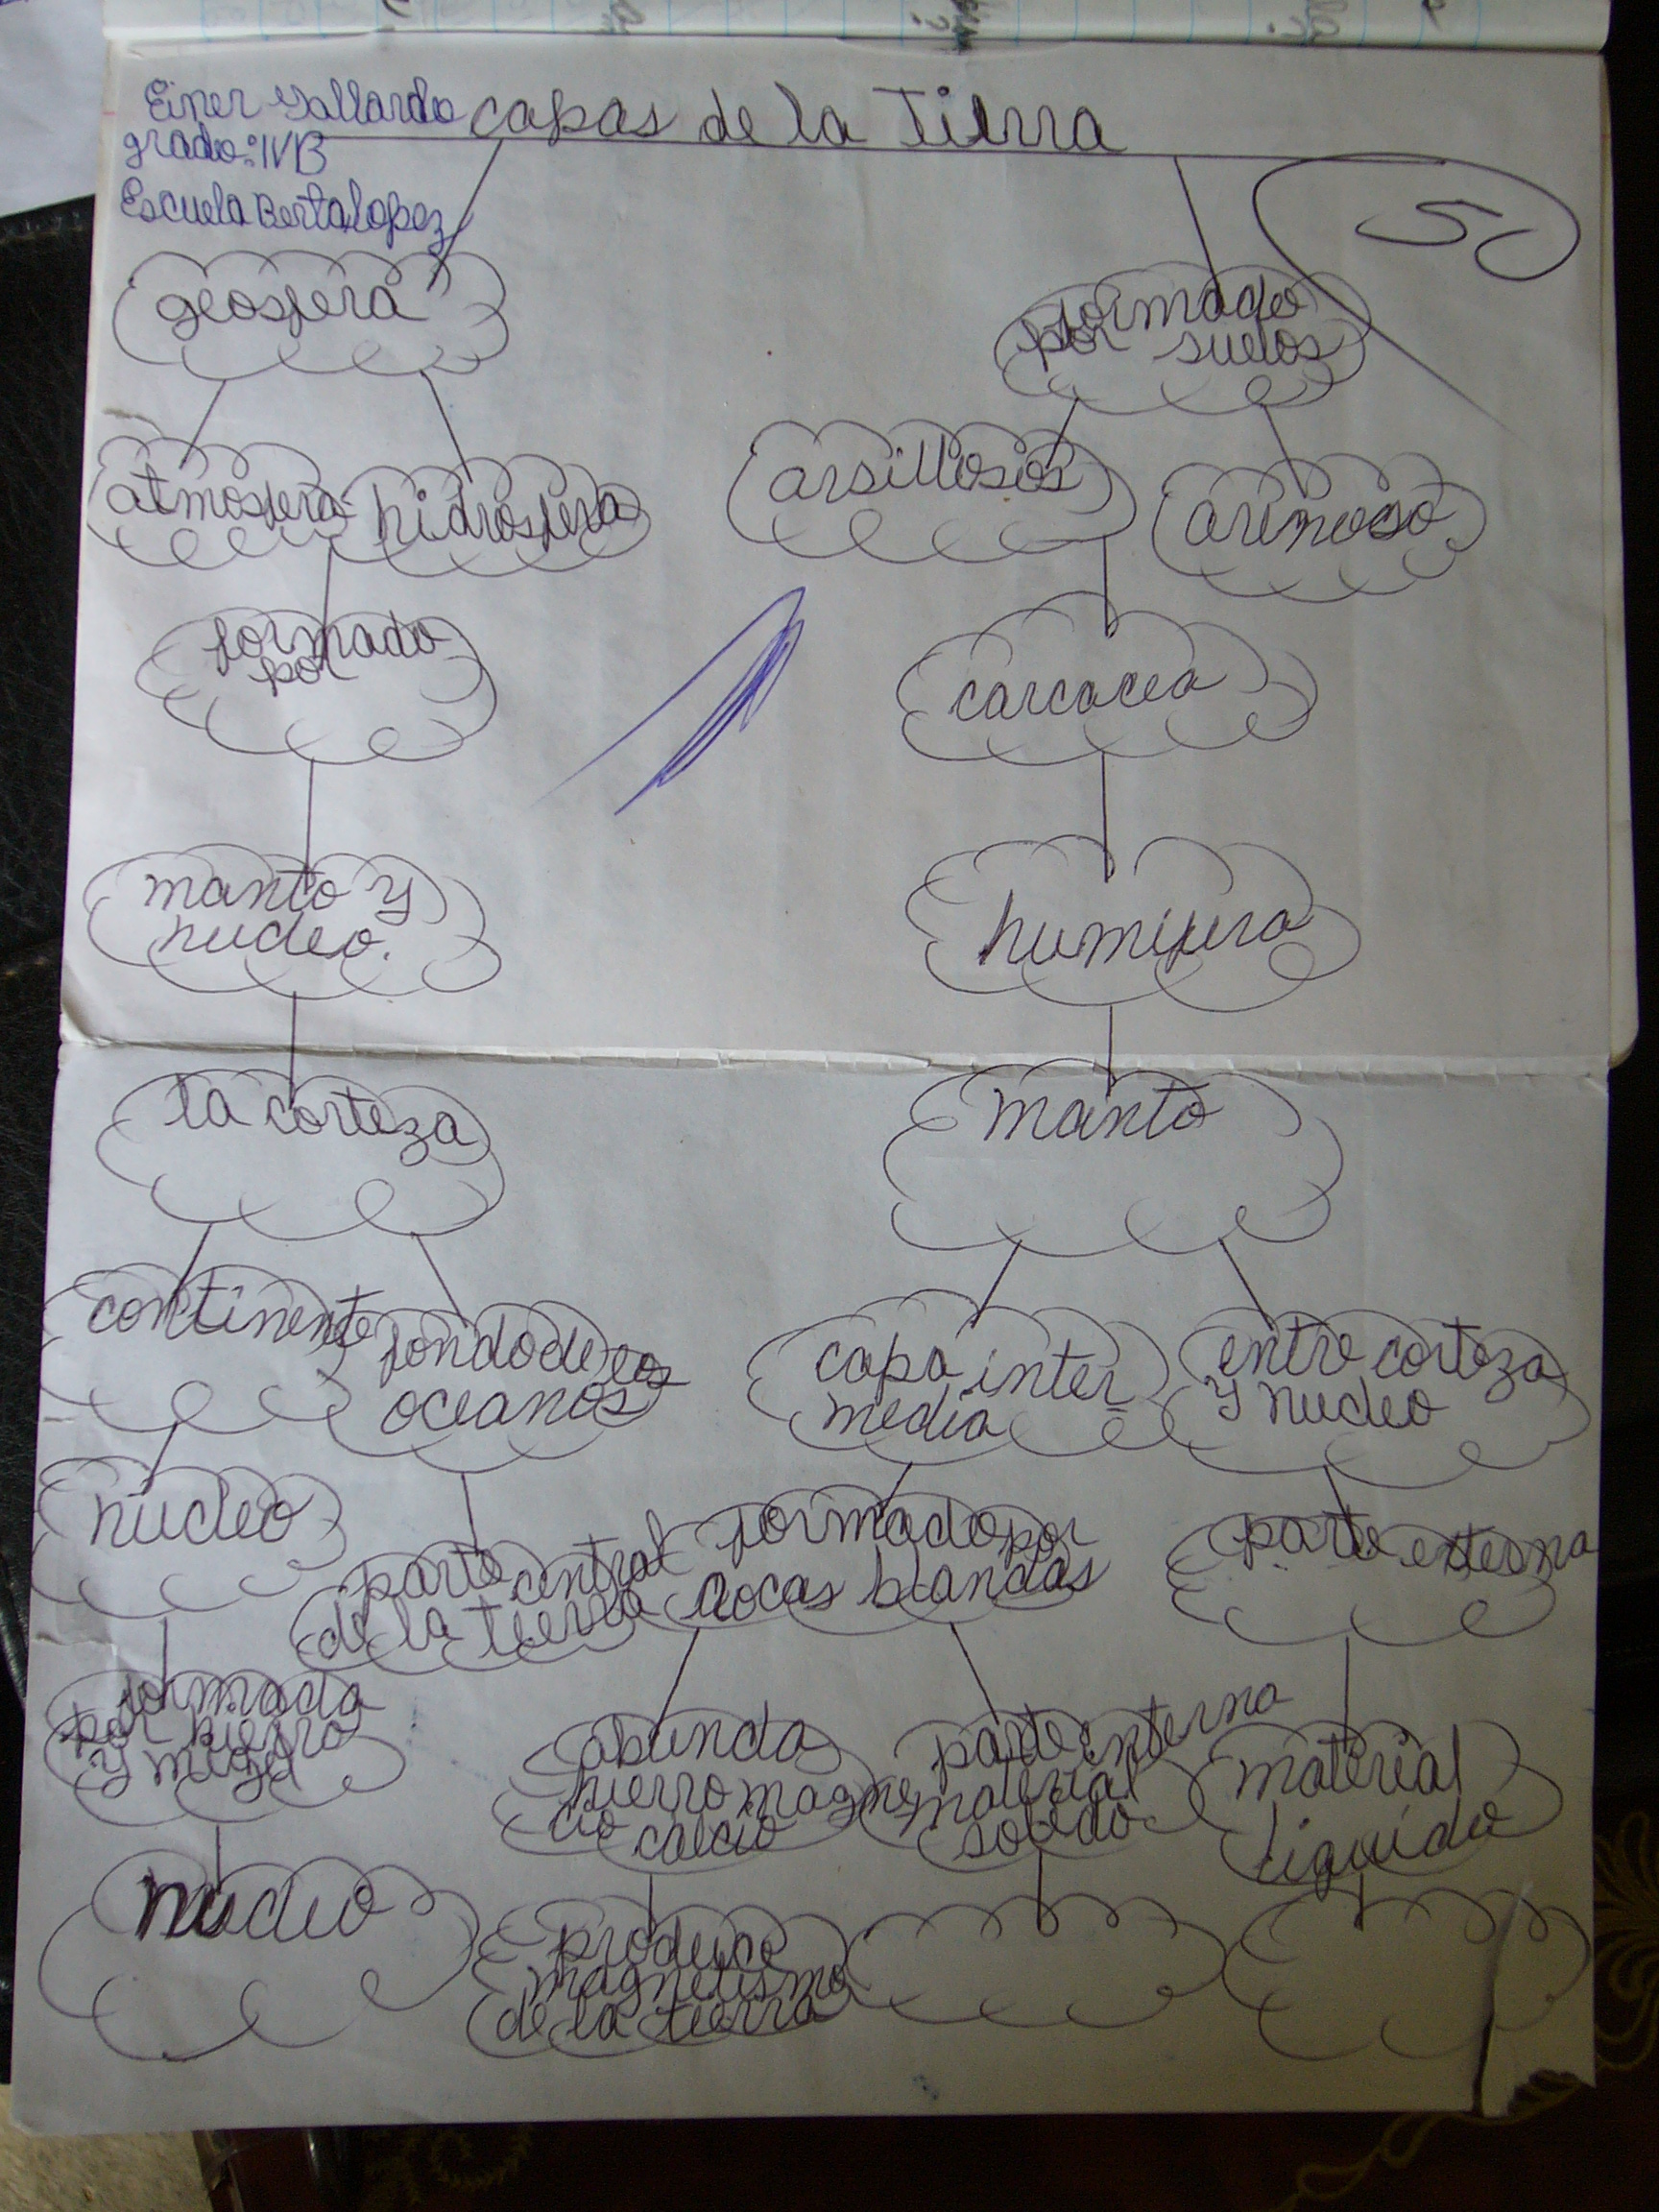 Einer Gallardo
grado: IVB
Escuela Berta Lopez
capas de la Tierra
geosfera
formado
por suelos
atmosfera
hidrosfera
arsillosios
arenoso
formado
por
carcacea
manto y
nucleo.
humifera
la corteza
manto
continente
fondo de los
oceanos
capa inter
media
entre corteza
y nucleo
nucleo
parte central
de la tierra
formado por
rocas blandas
parte externa
formada
por hierro
y
abunda
hierro magne
cio
calcio
parte interna
material
solido
material
liquido
nucleo
produce
magnetismo
de la tierra